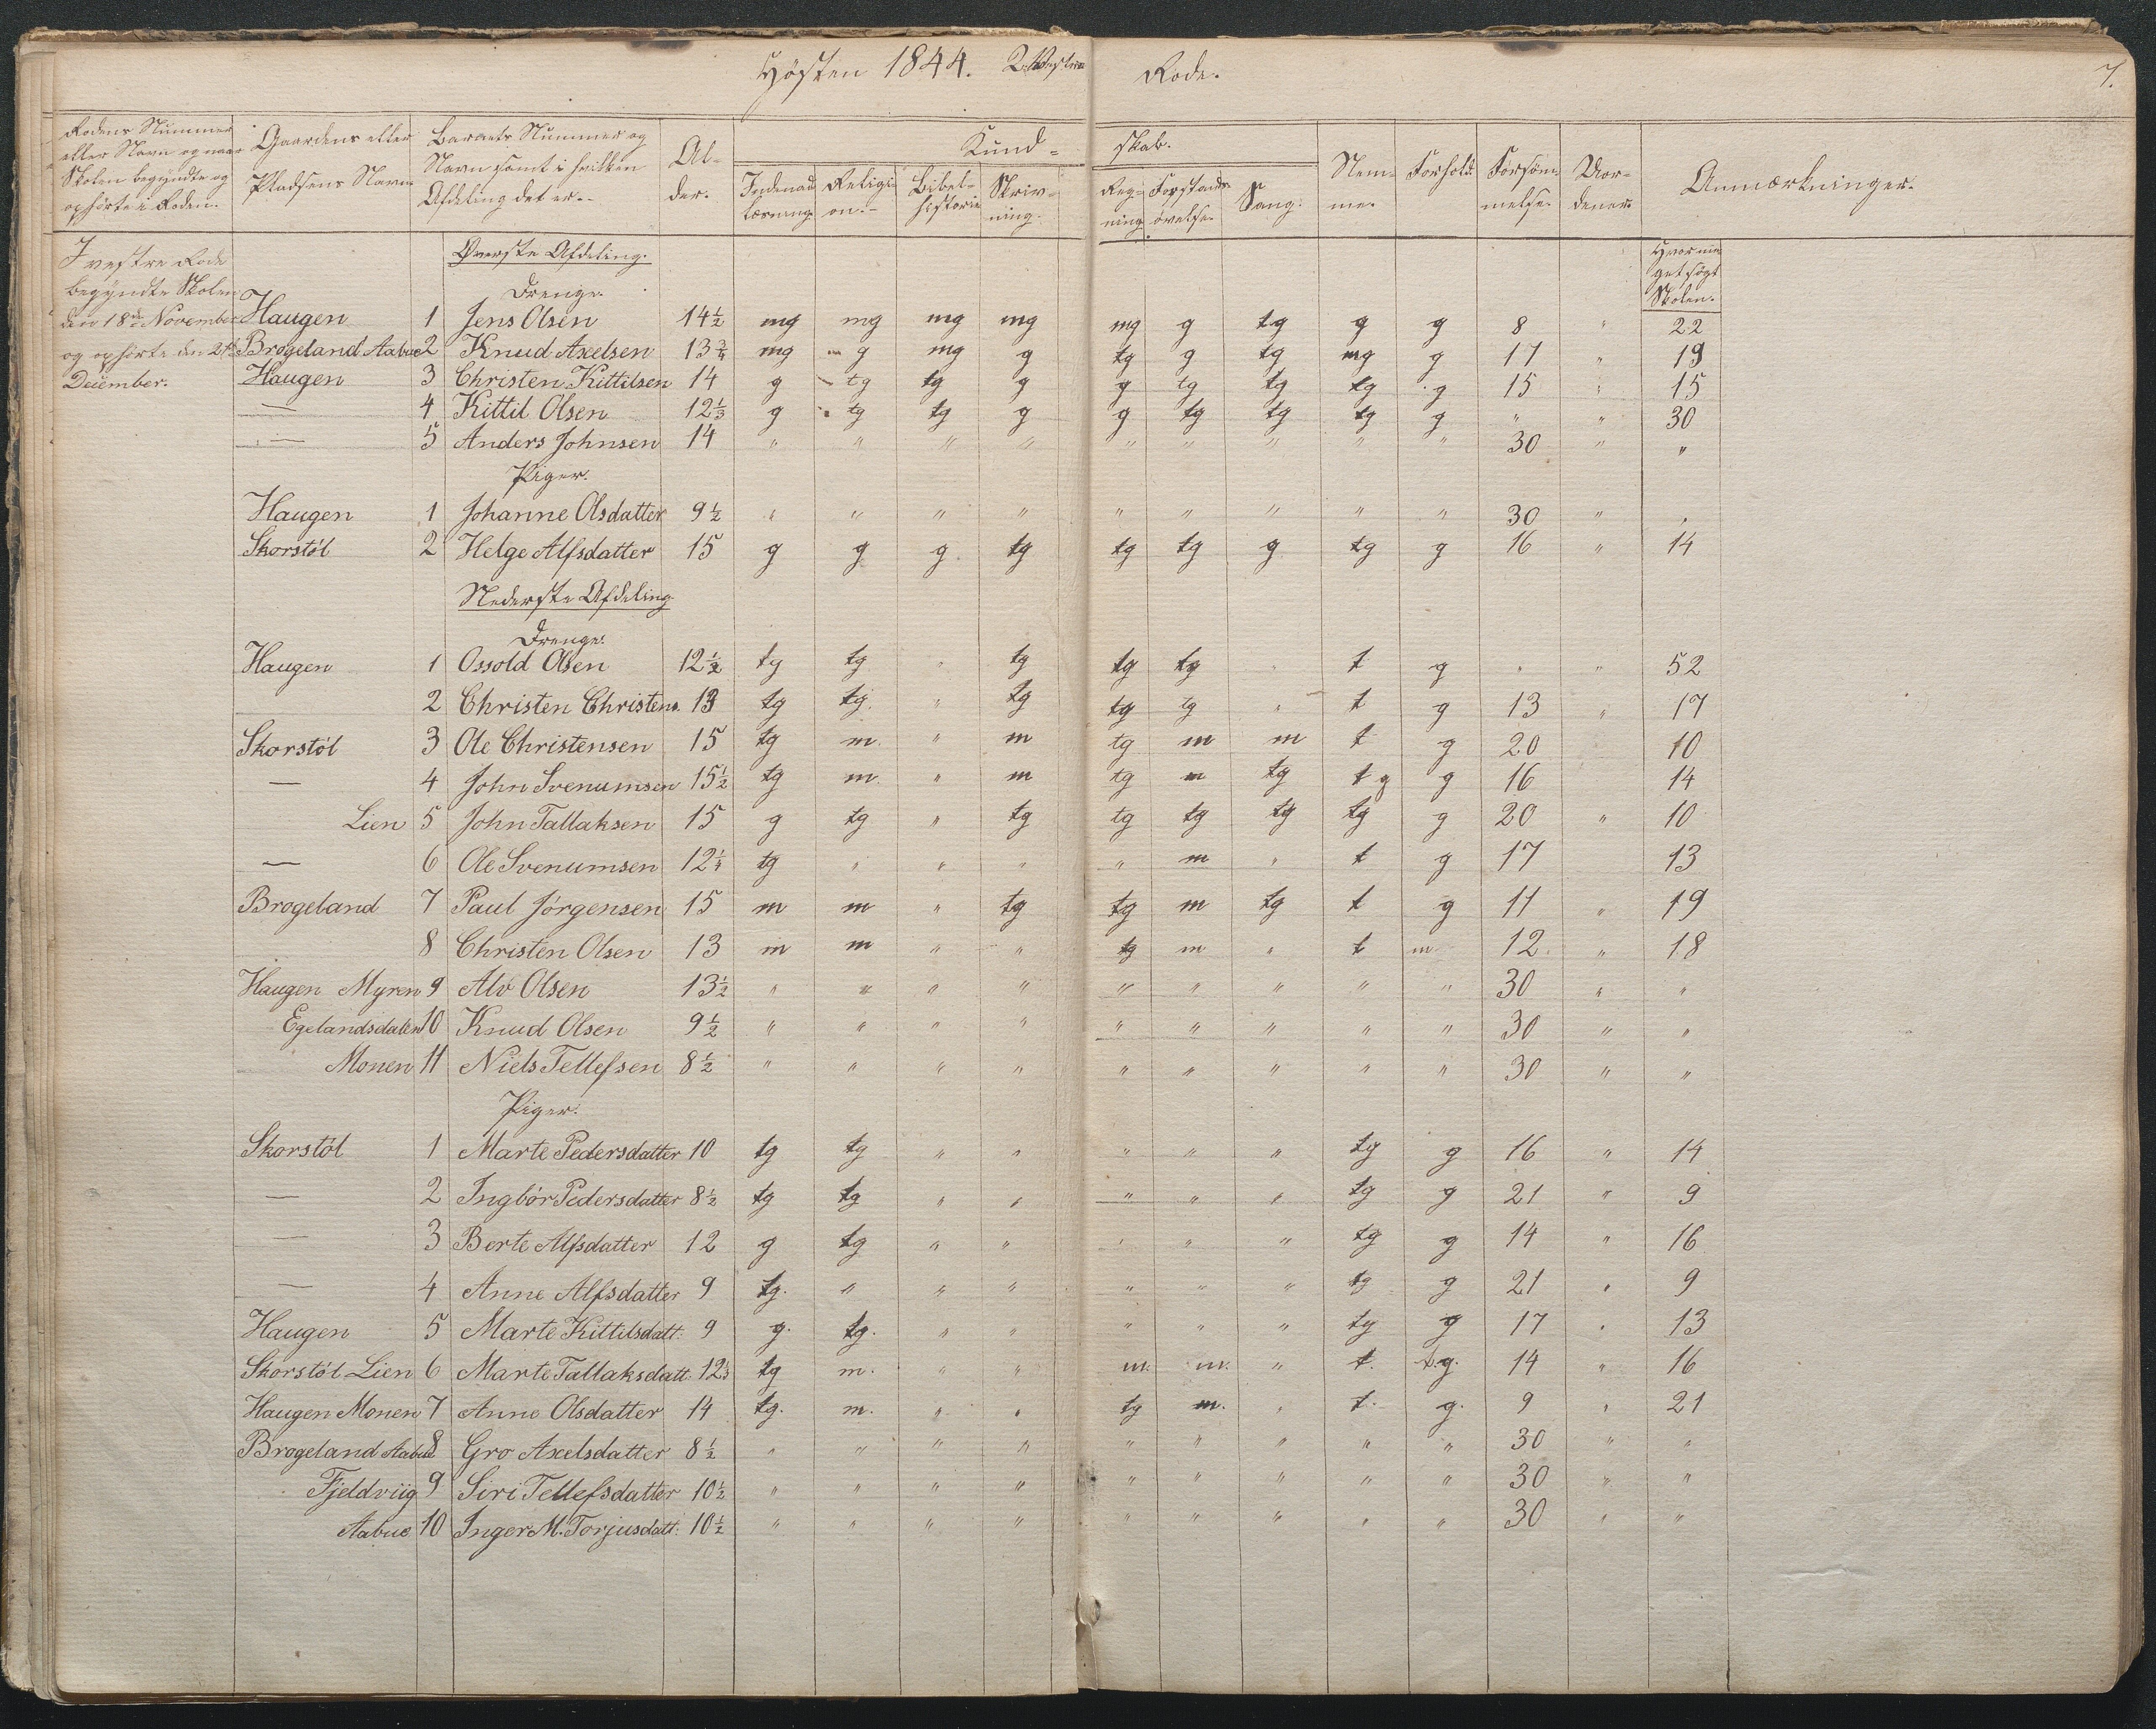 Høsten 1844. 2. Vestre Rode.
7.
Rodens Nummer eller Navn og naar Skolen begyndte og ophørte i Roden.
Gaardens eller Pladsens Navn
Barnets Nummer og Navn samt i hvilken Afdeling det er.
Alder.
Kundskab.
Indenad læsning.
Religion.
Bibelhistorie
Skrivning.
Regning.
Forstandsøvelse.
Sang.
Nemme.
Forhold.
Forsømmelse.
Uordener.
Anmærkninger.
I vestre Rode
begyndte Skolen
den 18de November
og ophørte den 21de
December.
Hvor meget søgt Skolen.
Øverste Afdeling.
Drenge.
Haugen 1 Jens Olsen 14½ mg mg mg mg mg g tg g g 8 " 22
Brogeland Aabue 2 Knud Axelsen 13¾ mg g mg g tg g tg mg g 17 " 19
Haugen 3 Christen Kittilsen 14 g tg tg g g tg tg tg g 15 " 15
— 4 Kittil Olsen 12⅓ g tg tg g g tg tg tg g " " 30
— 5 Anders Johnsen 14 " " " " " " " " " 30 " "
Piger.
Haugen 1 Johanne Olsdatter 9½ " " " " " " " " " 30 " "
Skorstøl 2 Helge Alfsdatter 15 g g g tg tg tg g tg g 16 " 14
Nederste Afdeling
Drenge.
Haugen 1 Ossold Olsen 12½ tg tg " tg tg tg " t g " " 52
2 Christen Christens. 13 tg tg " tg tg tg " t g 13 " 17
Skorstøl 3 Ole Christensen 15 tg m. " m tg m m t g 20 10
— 4 John Svenumsen 15½ tg m. " m tg m tg tg g 16 14
Lien 5 John Tallaksen 15 g tg " tg tg tg tg tg g 20 " 10
— 6 Ole Svenumsen 12¼ tg " " " " m " t g 17 13
Brogeland 7 Paul Jørgensen 15 m m " tg tg m tg t g 11 " 19
8 Christen Olsen 13 m m " " tg m " t m 12. " 18
Haugen Myren 9 Alv Olsen 13½ " " " " " " " " " 30 " "
Egelandsdalen 10 Knud Olsen 9½ " " " " " " " " " 30 " "
Monen 11 Niels Tellefsen 8½ " " " " " " " " " 30 " "
Piger.
Skorstøl 1 Marte Pedersdatter 10 tg tg " " " " " tg g 16 " 14
— 2 Ingbør Pedersdatter 8½ tg tg " " " " " tg g 21 " 9
— 3 Berte Alfsdatter 12 g tg " " " " " tg g 14 " 16
— 4 Anne Alfsdatter 9 tg. " " " " " " tg g 21 " 9
Haugen 5 Marte Kittilsdatt. 9 g. tg. " " " " " tg g 17 " 13
Skorstøl Lien 6 Marte Tallaksdatt. 12⅓ tg m. " " m. m. " t. t.g. 14 " 16
Haugen Monen 7 Anne Olsdatter 14 tg. m. " " tg m. " t. g. 9 " 21
Brogeland Aabue 8 Gro Axelsdatter 8½ " " " " " " " " " 30 " "
Fjeldviig 9 Siri Tellefsdatter 10½ " " " " " " " " " 30 " "
Aabue 10 Inger M. Torjusdatt. 10½ " " " " " " " " " 30 " "